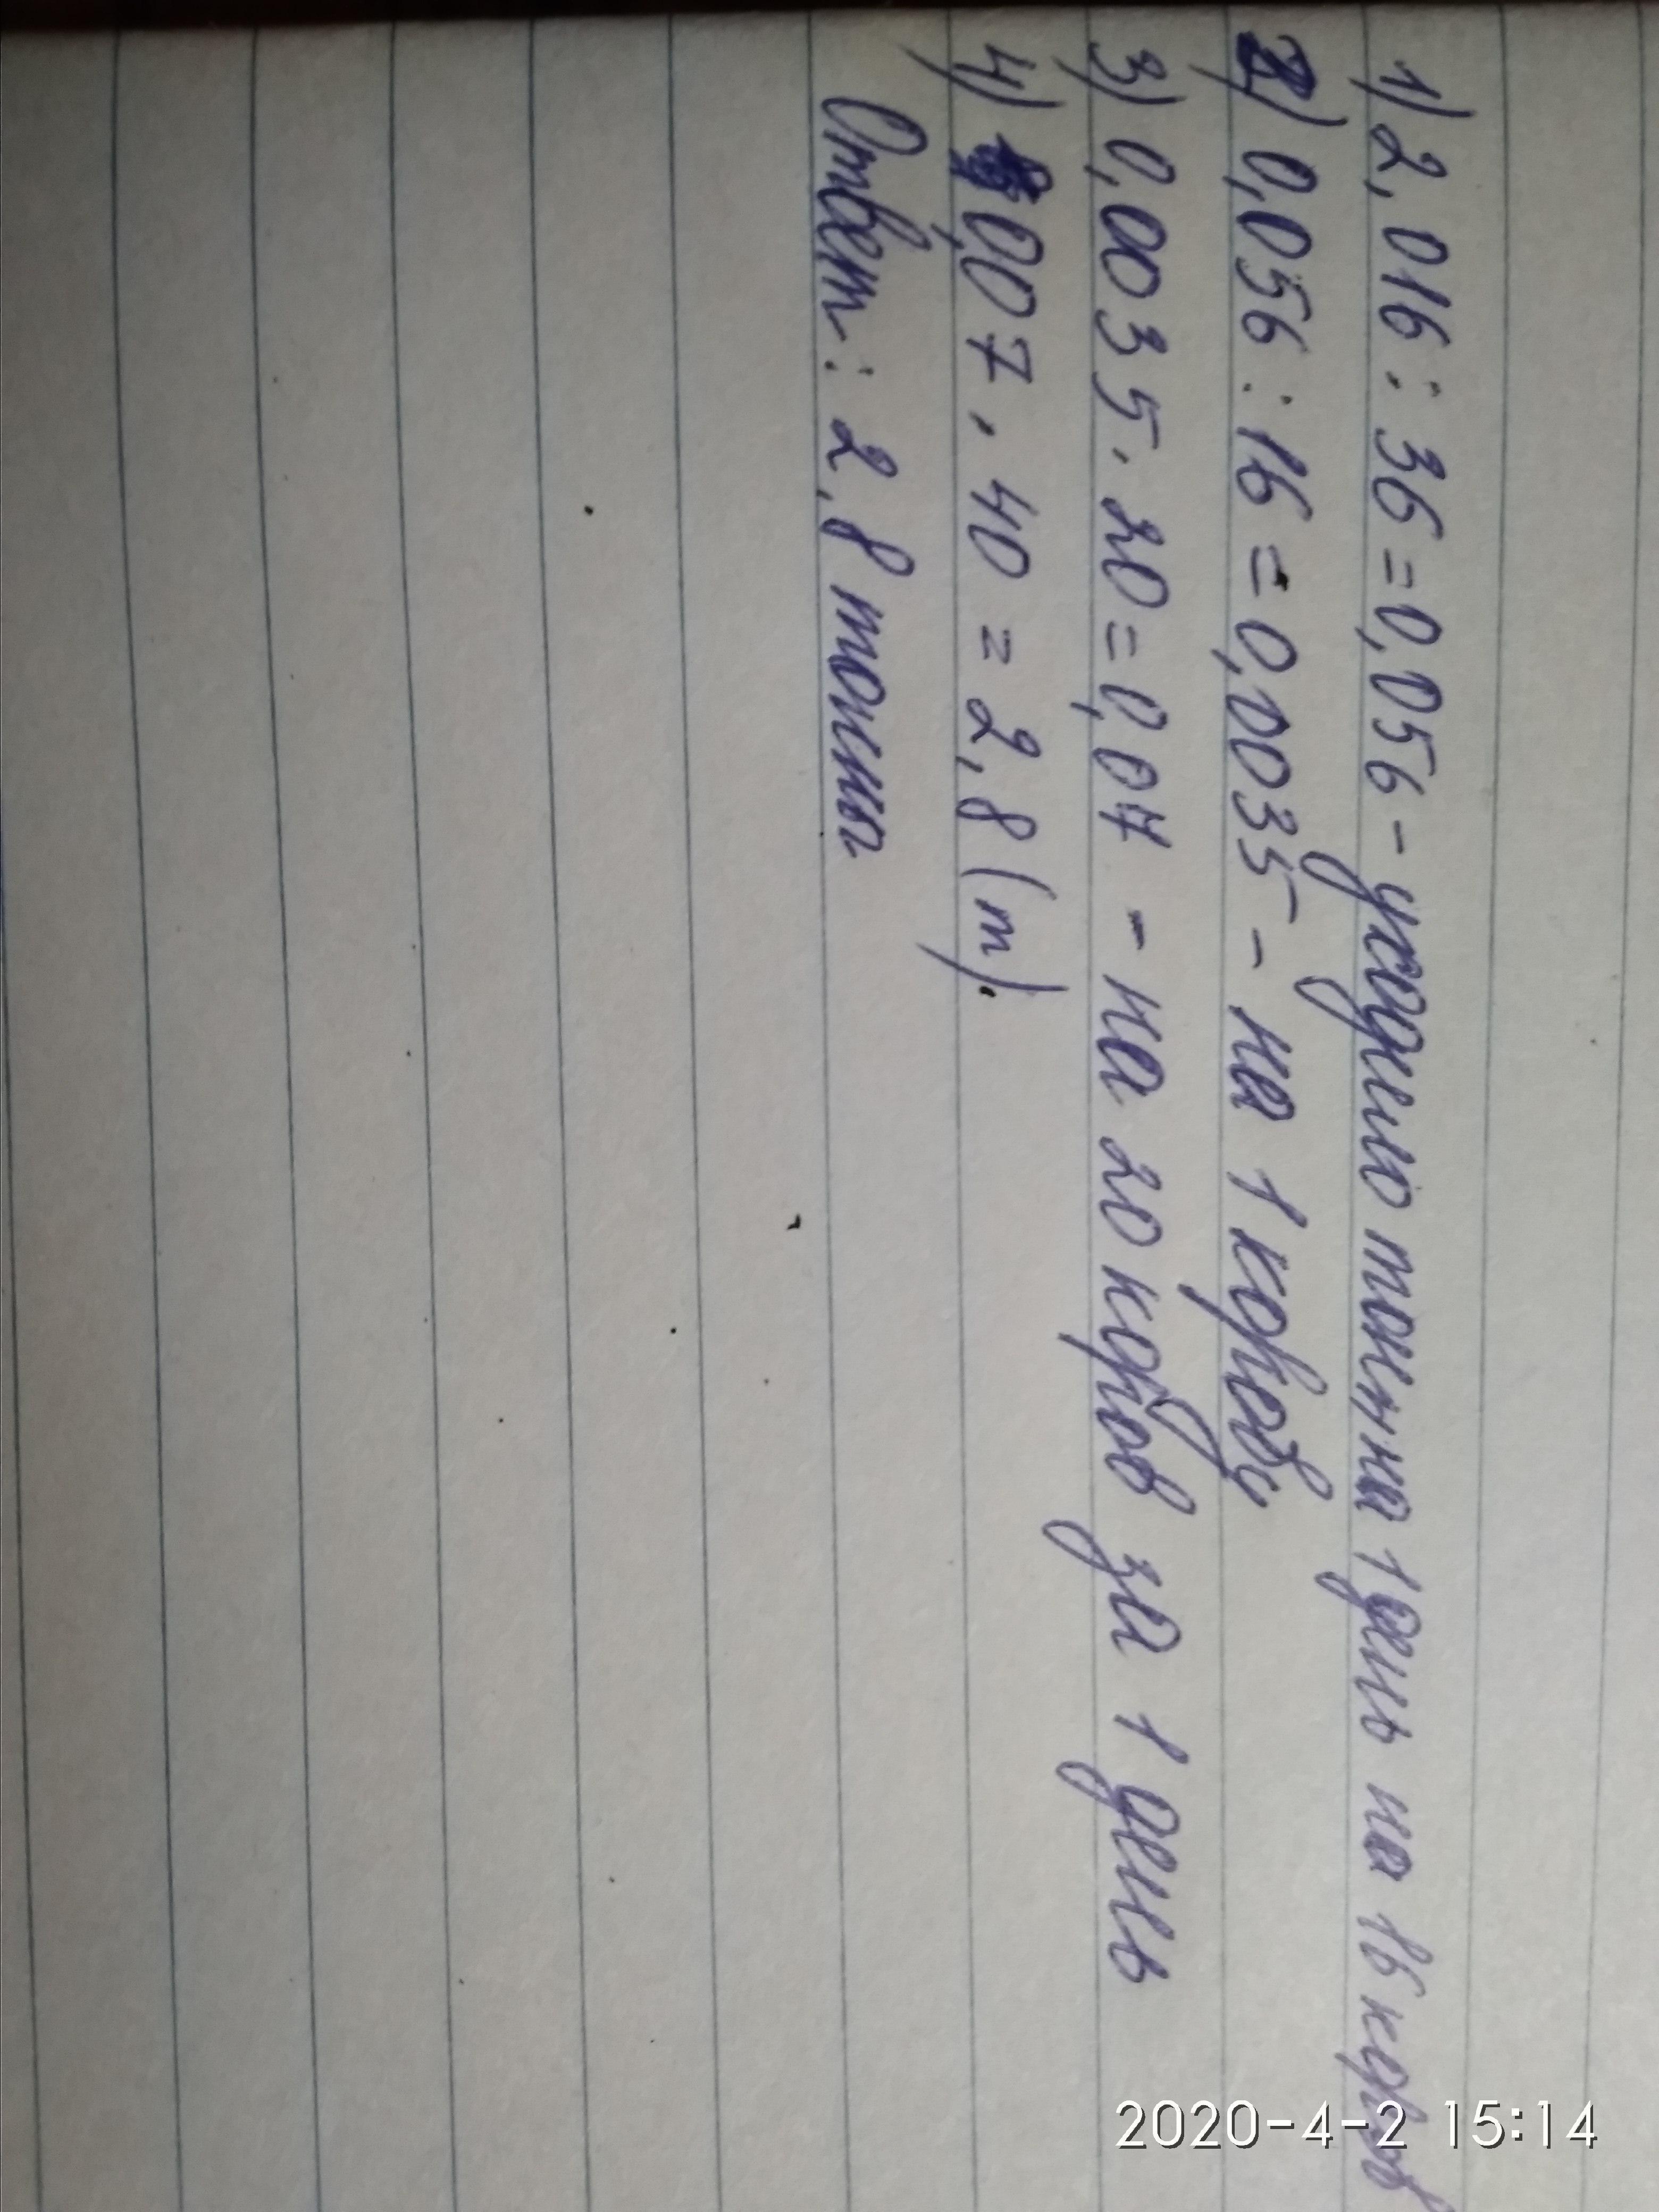 1) 2,016 : 36 = 0,056 - уходило тонн на 1 день на 16 коров
2) 0,056 : 16 = 0,0035 - на 1 корову
3) 0,0035 . 20 = 0,07 - на 20 коров за 1 день
4) 0,007 . 40 = 2,8 (т).
Ответ: 2,8 тонны
2020-4-2 15:14